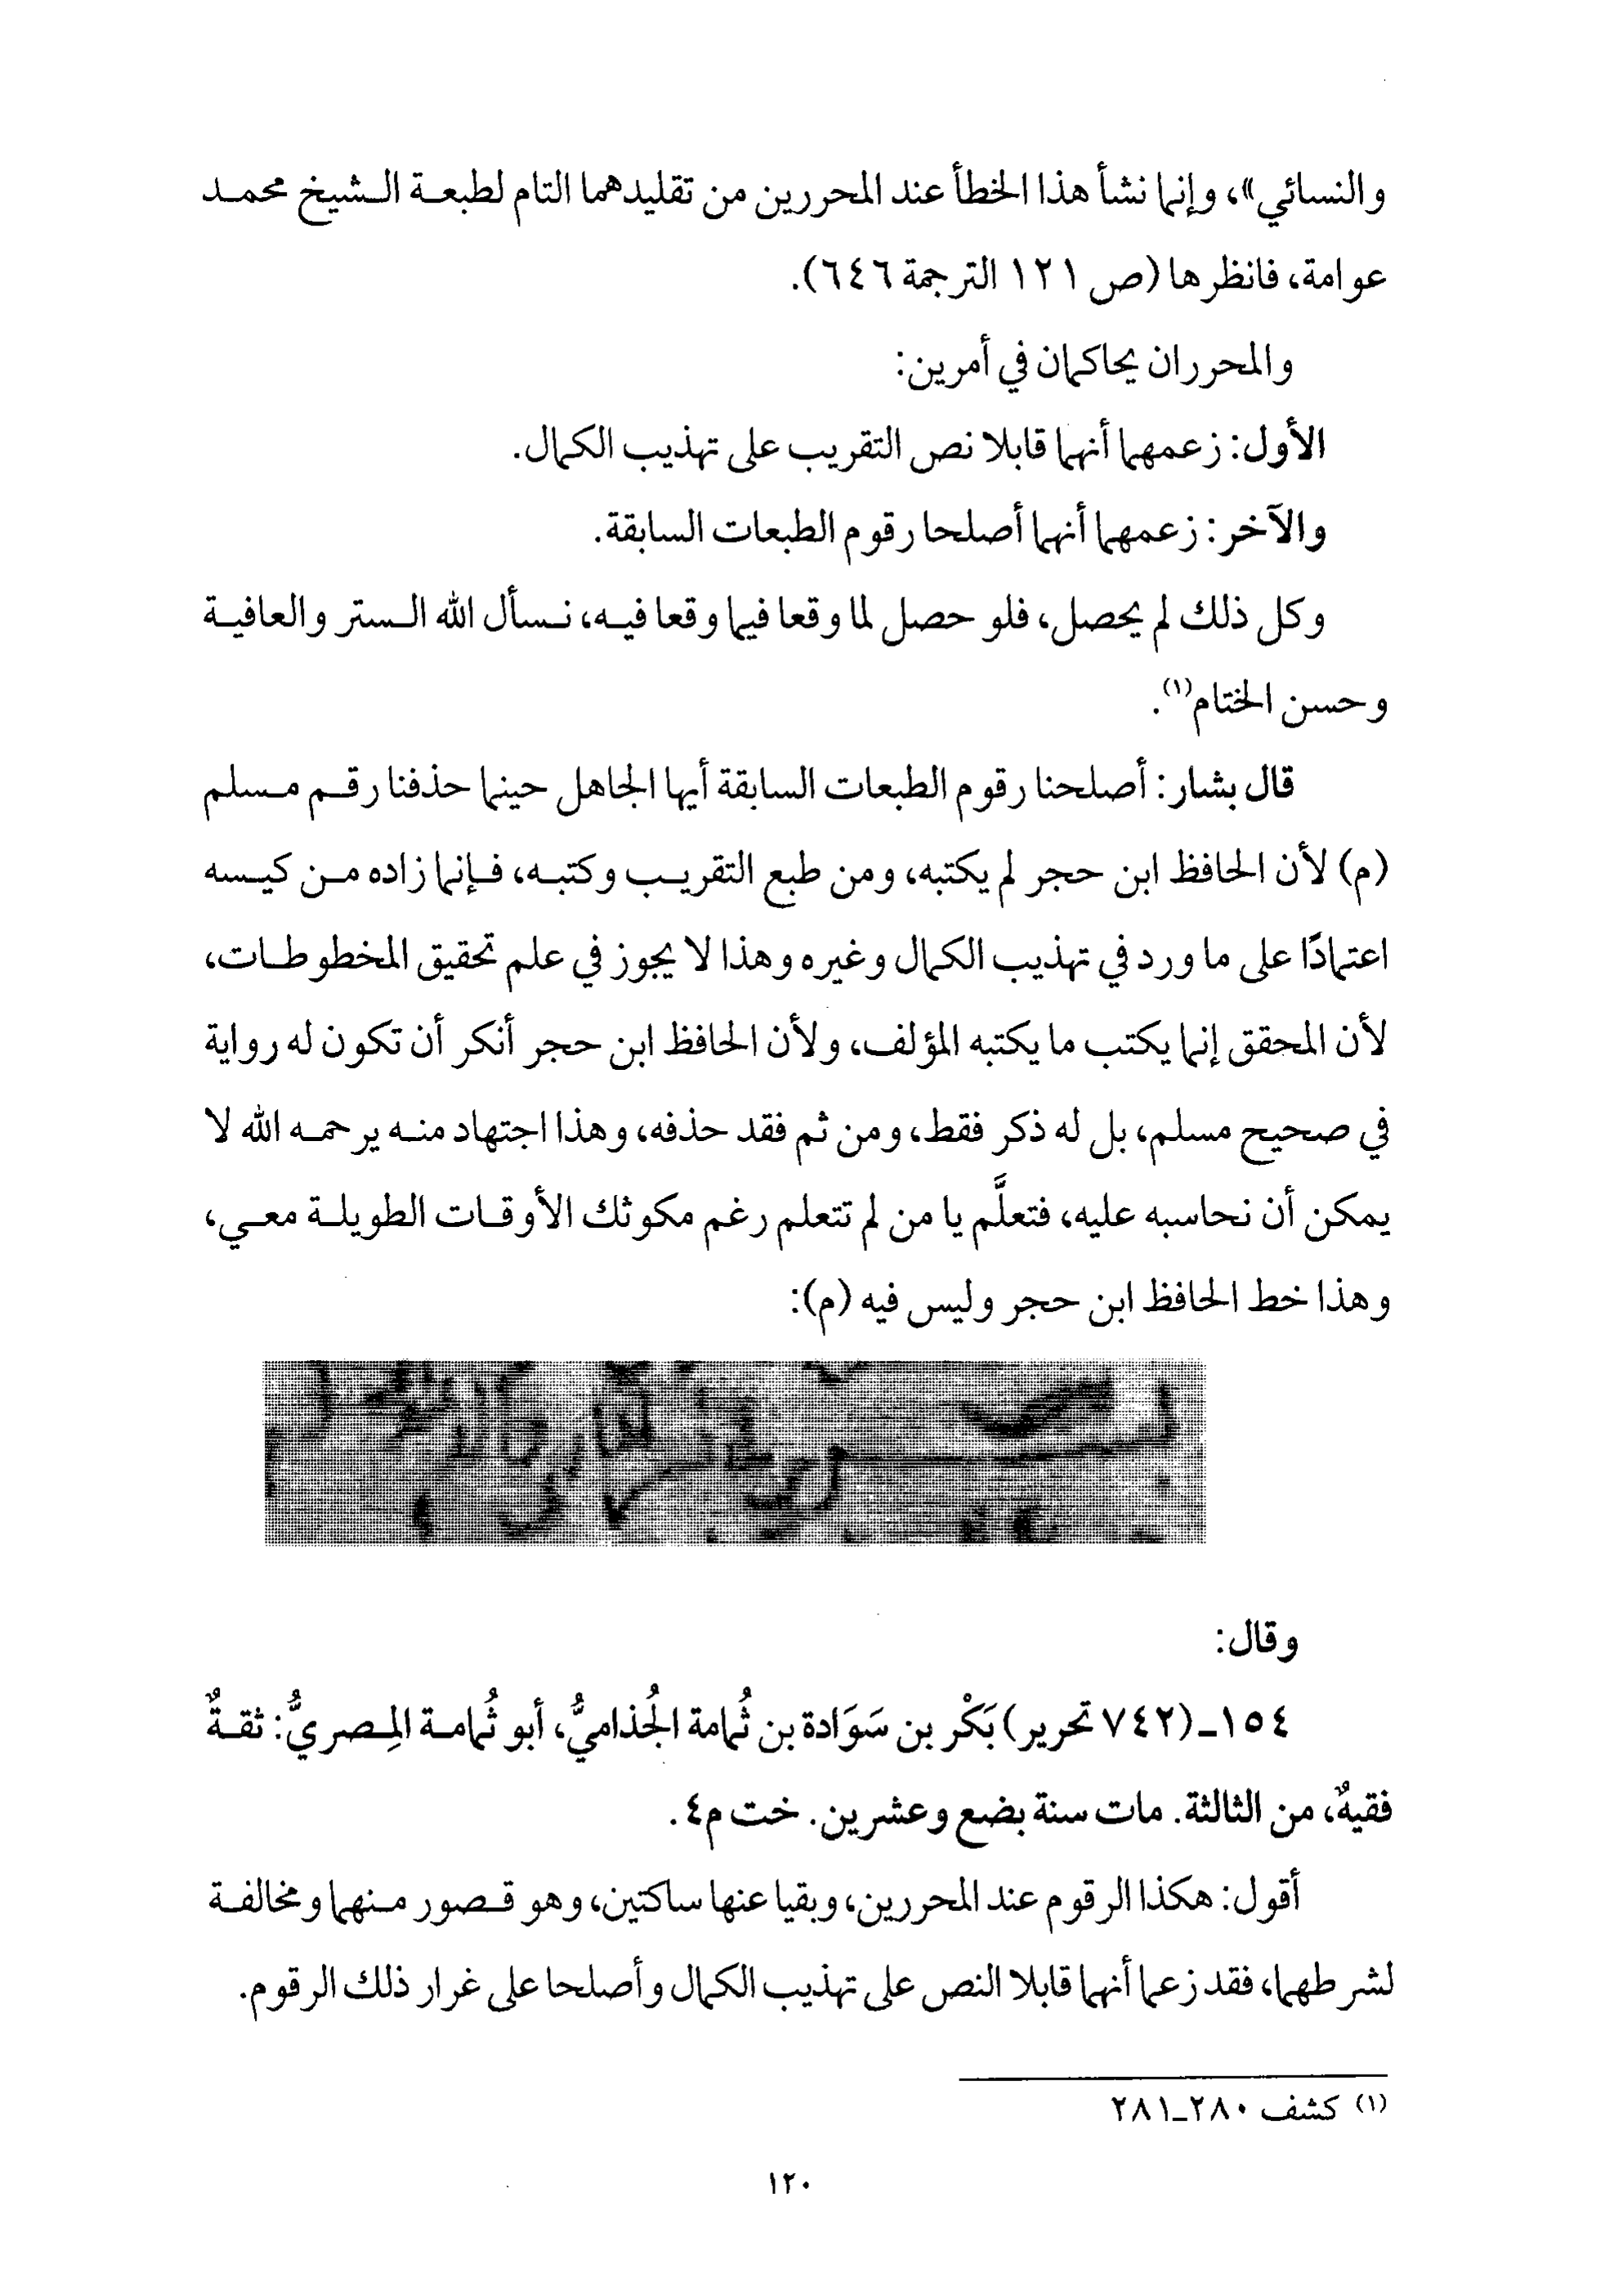 والنسائي»، وإنما نشأ هذا الخطأ عند المحررين من تقليدهما التام لطبعة الشيخ محمد
عوامة، فانظرها (ص ١٢١ الترجمة ٦٤٦).
والمحرران يحاكمان في أمرين:
الأول: زعمهما أنهما قابلا نص التقريب على تهذيب الكمال.
والآخر: زعمهما أنهما أصلحا رقوم الطبعات السابقة.
وكل ذلك لم يحصل، فلو حصل لما وقعا فيما وقعا فيه، نسأل الله الستر والعافية
وحسن الختام(١).
قال بشار: أصلحنا رقوم الطبعات السابقة أيها الجاهل حينما حذفنا رقم مسلم
(م) لأن الحافظ ابن حجر لم يكتبه، ومن طبع التقريب وكتبه، فإنما زاده من كيسه
اعتمادًا على ما ورد في تهذيب الكمال وغيره وهذا لا يجوز في علم تحقيق المخطوطات،
لأن المحقق إنما يكتب ما يكتبه المؤلف، ولأن الحافظ ابن حجر أنكر أن تكون له رواية
في صحيح مسلم، بل له ذكر فقط، ومن ثم فقد حذفه، وهذا اجتهاد منه يرحمه الله لا
يمكن أن نحاسبه عليه، فتعلَّم يا من لم تتعلم رغم مكوثك الأوقات الطويلة معي،
وهذا خط الحافظ ابن حجر وليس فيه (م):
وقال:
١٥٤ـ(٧٤٢ تحرير) بَكْر بن سَوَادة بن ثُمامة الجُذاميُّ، أبو ثُمامة المِصريُّ: ثقةٌ
فقيهٌ، من الثالثة. مات سنة بضع وعشرين. خت م٤.
أقول: هكذا الرقوم عند المحررين، وبقيا عنها ساكتين، وهو قصور منهما ومخالفة
لشرطهما، فقد زعما أنهما قابلا النص على تهذيب الكمال وأصلحا على غرار ذلك الرقوم.
(١) كشف ٢٨٠ـ٢٨١
١٢٠